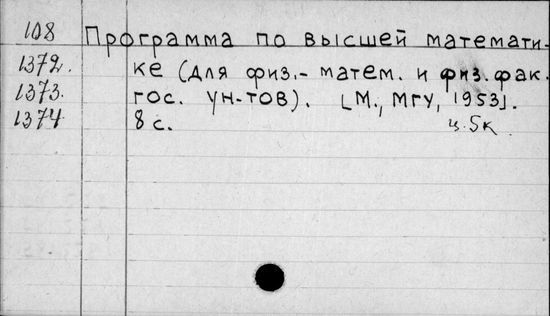 108 Программа по высшей математи-
1372. ке (для физ.- матем. и физ. фак.
1373. гос. ун-тов). [М., МГУ, 1953].
1374 8 с. ц. 5к